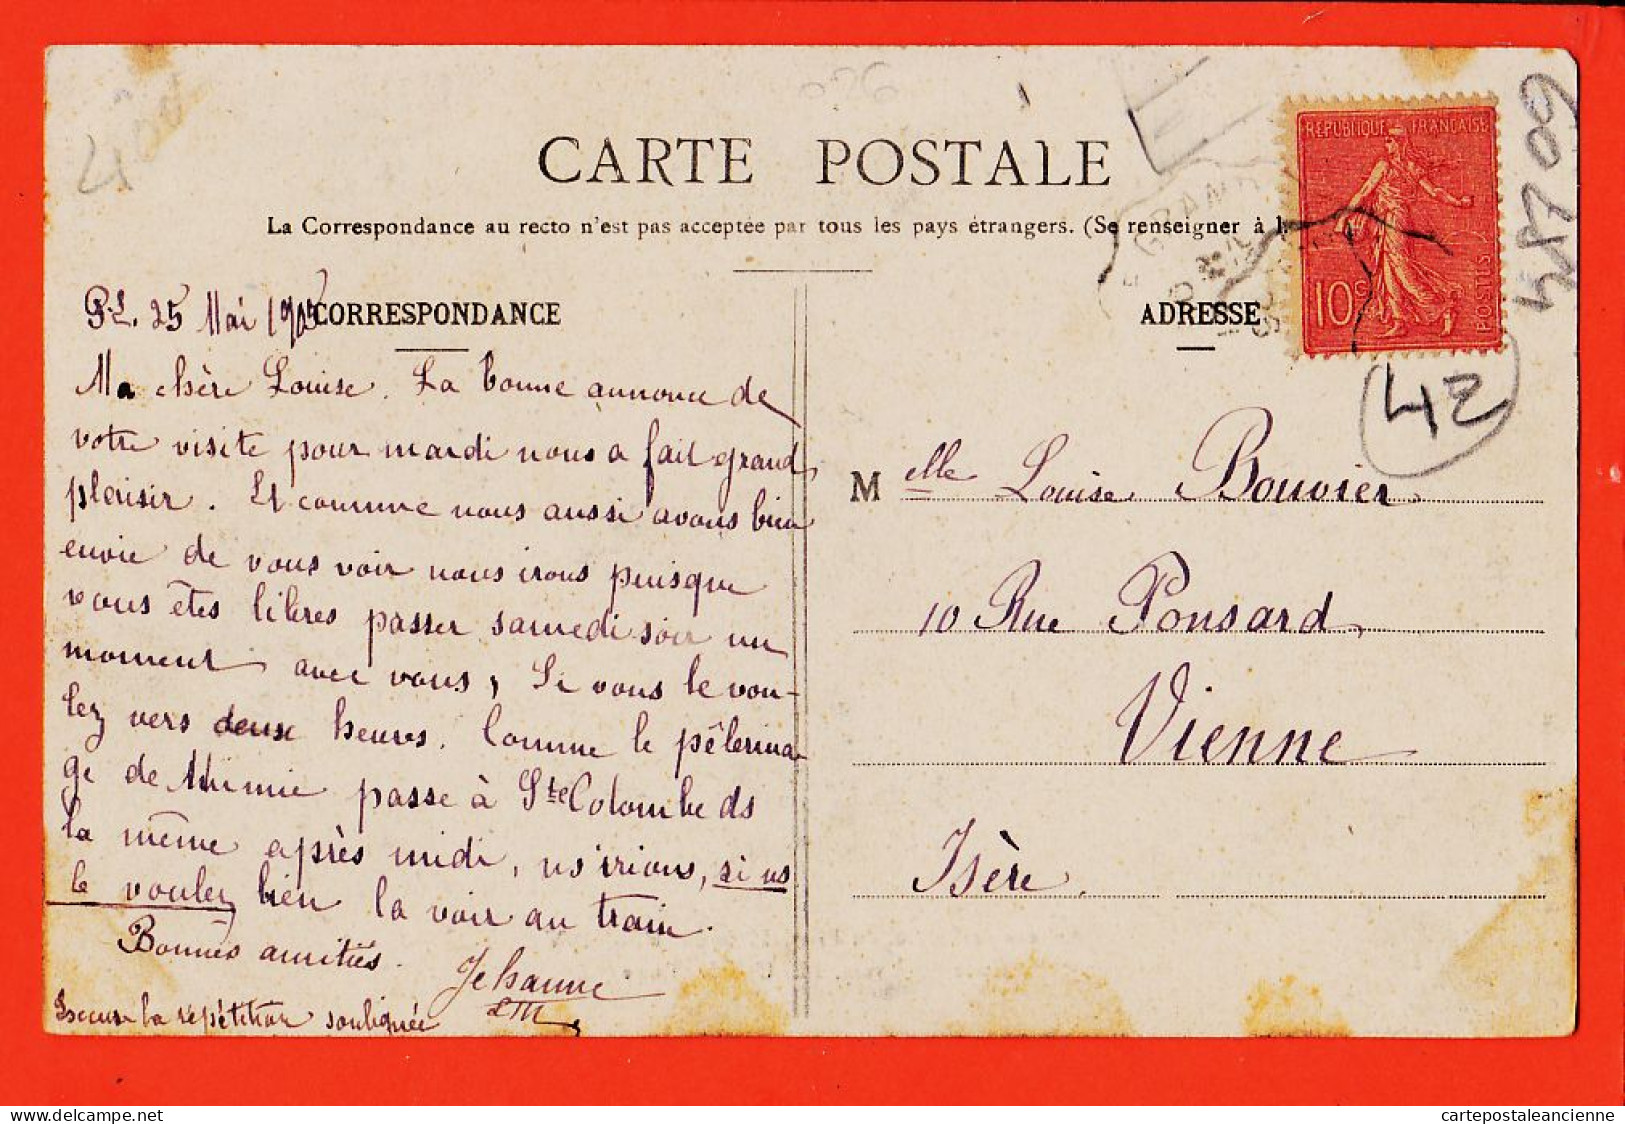 CARTE POSTALE
La Correspondance au recto n'est pas acceptée par tous les pays étrangers. (Se renseigner à l
REPUBLIQUE FRANÇAISE
10c
POSTES
4Z
P.L. 25 Mai 1905
CORRESPONDANCE
ADRESSE
Ma chère Louise. La bonne annonce de
votre visite pour mardi nous a fait grand
plaisir. Et comme nous aussi avons bien
envie de vous voir nous irons puisque
vous êtes libres passer samedi soir un
moment avec vous, Si vous le vou-
lez vers deux heures. Comme le pélerina
ge de passe à Ste Colombe ds
la même après midi, ns irions, si vs
le voulez bien la voir au train.
Bonnes amitiés.
Jehanne
Excuse la répétition soulignée
Melle Louise Bouvier
10 Rue Ponsard
Vienne
Isère.
cartepostaleancienne